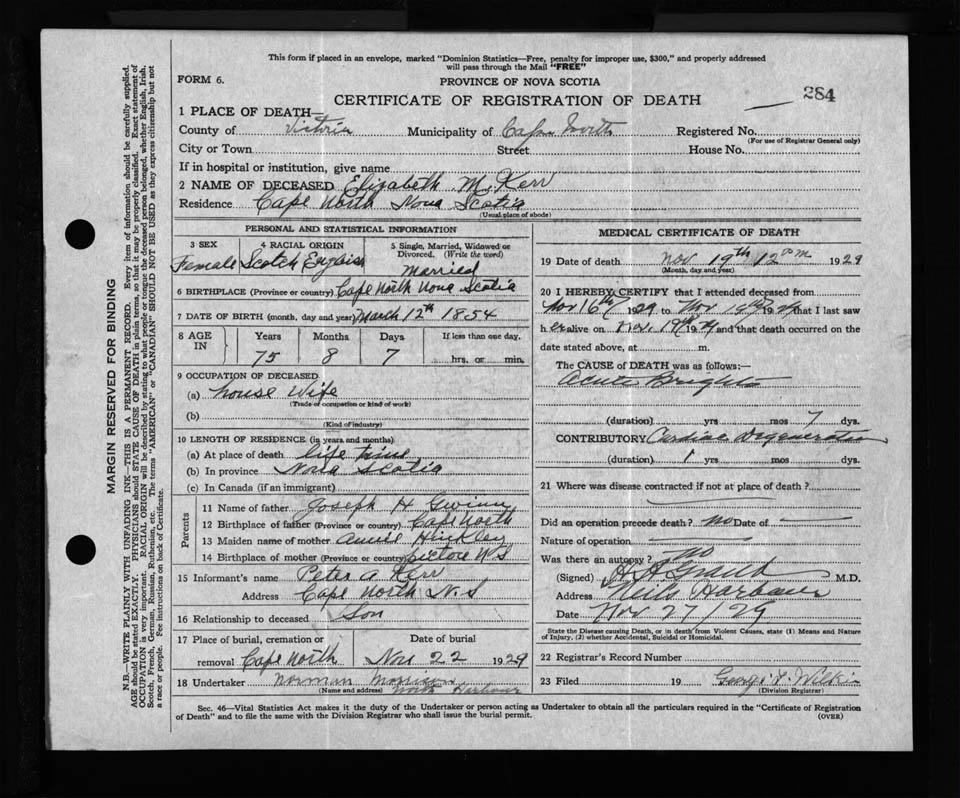 This form if placed in an envelope, marked "Dominion Statistics—Free, penalty for improper use, $300," and properly addressed
will pass through the Mail "FREE"
FORM 6.
PROVINCE OF NOVA SCOTIA
CERTIFICATE OF REGISTRATION OF DEATH
284
1 PLACE OF DEATH—
County of Victoria Municipality of Cape North Registered No.
(For use of Registrar General only)
City or Town Street House No.
If in hospital or institution, give name
2 NAME OF DECEASED Elizabeth M. Kerr
Residence Cape North Nova Scotia
(Usual place of abode)
PERSONAL AND STATISTICAL INFORMATION
3 SEX 4 RACIAL ORIGIN 5 Single, Married, Widowed or
Divorced. (Write the word)
Female Scotch English Married
6 BIRTHPLACE (Province or country) Cape North Nova Scotia
7 DATE OF BIRTH (month, day and year) March 12th 1854
8 AGE IN Years Months Days If less than one day,
75 8 7 hrs. or min.
9 OCCUPATION OF DECEASED
(a) house Wife
(Trade or occupation or kind of work)
(b)
(Kind of industry)
10 LENGTH OF RESIDENCE (in years and months)
(a) At place of death life time
(b) In province Nova Scotia
(c) In Canada (if an immigrant)
Parents
11 Name of father Joseph H Gwinn
12 Birthplace of father (Province or country) Cape North
13 Maiden name of mother Annie Hinkley
14 Birthplace of mother (Province or country) pictou N S
15 Informant's name Peter A Kerr
Address Cape North N.S
16 Relationship to deceased Son
17 Place of burial, cremation or Date of burial
removal Cape North Nov 22 1929
18 Undertaker Norman Morrison
(Name and address) North Harbour
MEDICAL CERTIFICATE OF DEATH
19 Date of death Nov 19th 12 pm 1929
(Month, day and year)
20 I HEREBY CERTIFY that I attended deceased from
Nov 16th 1929 to Nov 19th 1929 that I last saw
h er alive on Nov. 19th 1929 and that death occurred on the
date stated above, at m.
The CAUSE OF DEATH was as follows:—
Acute Brights
(duration) yrs mos 7 dys.
CONTRIBUTORY Cardiac Degeneration
(duration) 1 yrs mos dys.
21 Where was disease contracted if not at place of death?
Did an operation precede death? no Date of
Nature of operation
Was there an autopsy? no
(Signed) Grant M.D.
Address Neils Harbour
Date Nov 27/29
State the Disease causing Death, or in death from Violent Causes, state (1) Means and Nature
of Injury, (2) whether Accidental, Suicidal or Homicidal.
22 Registrar's Record Number
23 Filed 19 George Wilkie
(Division Registrar)
Sec. 46—Vital Statistics Act makes it the duty of the Undertaker or person acting as Undertaker to obtain all the particulars required in the "Certificate of Registration
of Death" and to file the same with the Division Registrar who shall issue the burial permit.
(OVER)
MARGIN RESERVED FOR BINDING
N.B.—WRITE PLAINLY WITH UNFADING INK—THIS IS A PERMANENT RECORD. Every item of information should be carefully supplied.
AGE should be stated EXACTLY. PHYSICIANS should STATE CAUSE OF DEATH in plain terms, so that it may be properly classified. Exact statement of
OCCUPATION is very important. RACIAL ORIGIN will be described by stating to what people or tongue the deceased person belonged, whether English, Irish,
Scotch, French, German, Russian, Ruthenian, etc. The terms "AMERICAN" or "CANADIAN" SHOULD NOT BE USED as they express citizenship but not
a race or people. Fee instructions on back of Certificate.